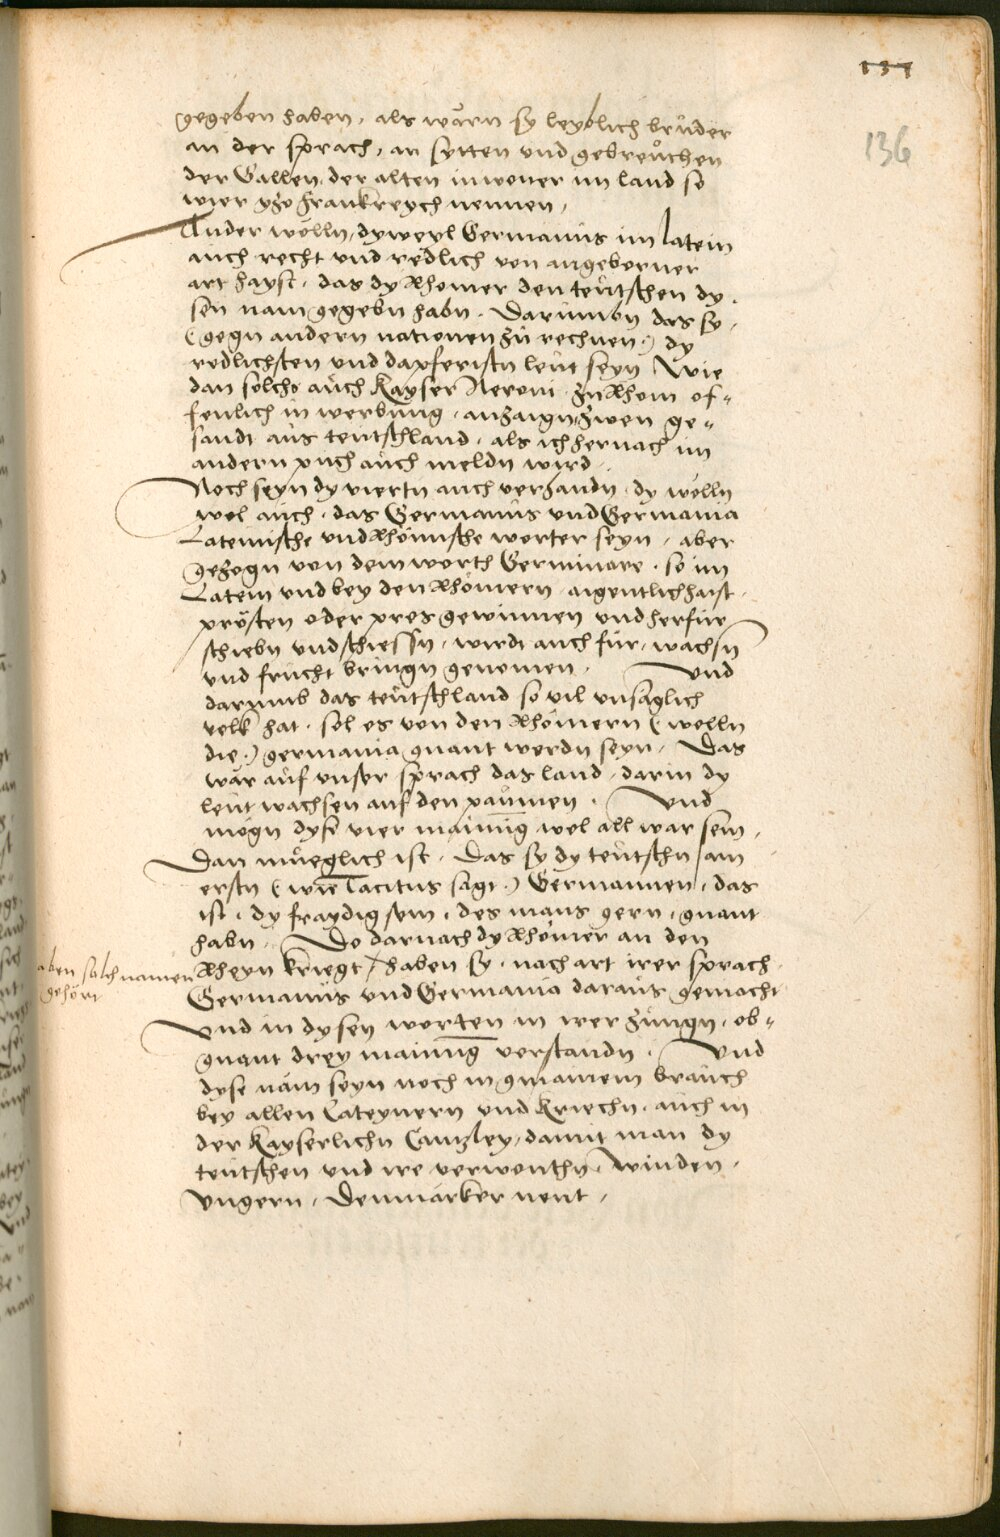 137
136
gegeben haben, als wärn sy leyblich brüder
an der sprach, an sytten und gebreuchen
der Gallen, der alten inwoner im land so
wier ytzo Frankreych nennen,
Ander wölln, dyweyl Germanus im latein
auch recht und redlich von angeborner
art hayst, das dy Rhömer den teutschen dy-
sen nam gegebn habn. Darumbn das sy,
(gegn andern nationen zu rechnen) dy
redlichsten und dapferistn leut seyn Wie
dan solchs auch Kayser Neroni zu Rhom of-
fenlich in werbung, anzaign zwen ge-
sandt aus teutschland, als ich hernach im
andern puch auch meldn wird.
Noch seyn dy viertn auch verhandn, dy wölln
wol auch, das Germanus und Germania
Lateinische und Rhömische worter seyn, aber
gezogn von dem worth Germinare, so im
Latein und bey den Rhömern aigentlich haist
prösten oder pros gewinnen und herfür
schiebn und schiessn, wirdt auch für wachsn
und frücht bringn genomen. Und
darumb das teutschland so vil unsäglich
volk hat, sol es von den Rhömern (wölln
die) germania gnant werdn seyn. Das
wär auf unser sprach das land, darin dy
leut wachsen auf den paumen. Und
mögn dyse vier mainung wol all war sein,
Dan müeglich ist, Das sy dy teutschn am
erstn (wie Tacitus sagt) Germannen, das
ist, dy fraydig sein, des mans gern, gnant
habn. Do darnach dy Rhömer an den
Rheyn kriegt, haben sy, nach art irer sprach
aben solch namen
gehört
Germanus und Germania daraus gemacht
Und in dysen worten in irer zungn, ob-
gnant drey mainung verstandn. Und
dyse nam seyn noch in gmainem brauch
bey allen Lateynern und Kriechn, auch in
der Kayserlichn Cantzley, damit man dy
teutschen und ire verwonthn, Winden,
Ungern, Denmärker nent,